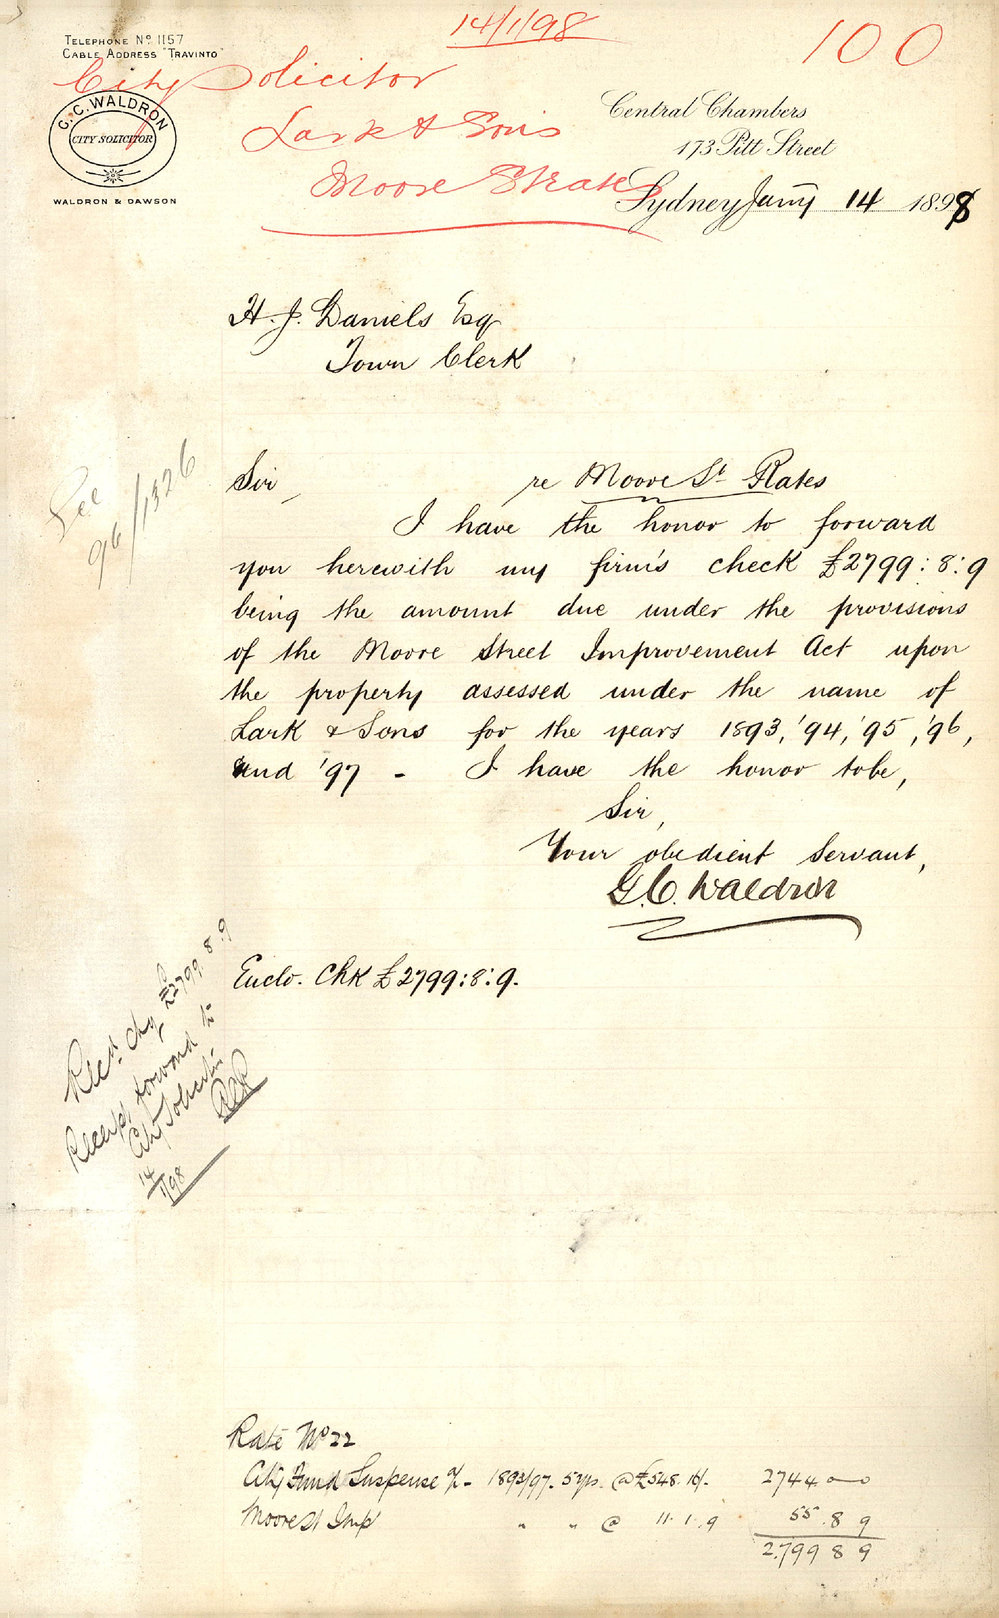 14/1/98
100
TELEPHONE No 1157
CABLE ADDRESS "TRAVINTO"
City Solicitor
Lark & Sons
Moore St Rates
G.C. WALDRON
CITY SOLICITOR
WALDRON & DAWSON
Central Chambers
173 Pitt Street
Sydney Jany 14 1898
H. J. Daniels Esq
Town Clerk
See
96/1326
Sir, re Moore St Rates
I have the honor to forward
you herewith my firm's check £2799:8:9
being the amount due under the provisions
of the Moore Street Improvement Act upon
the property assessed under the name of
Lark & Sons for the years 1893, '94, '95, '96,
and '97 - I have the honor to be,
Sir,
Your obedient Servant,
G.C. Waldron
Enclo. Chk £2799:8:9.
Recd. Chq £2799 8.9
Receipt forward to
City Solicitor
14/1/98
Rate No 22
City Fund Suspense a/c - 1893/97. 5 yrs. @ £548.16/. 2744 0 0
Moore St Imp " " @ 11.1.9 55.8 9
2799 8 9